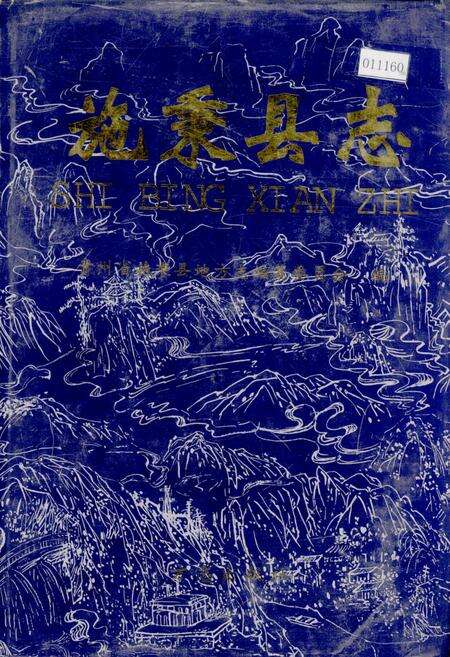 011160
施秉县志
SHI BING XIAN ZHI
贵州省施秉县地方志编纂委员会 编